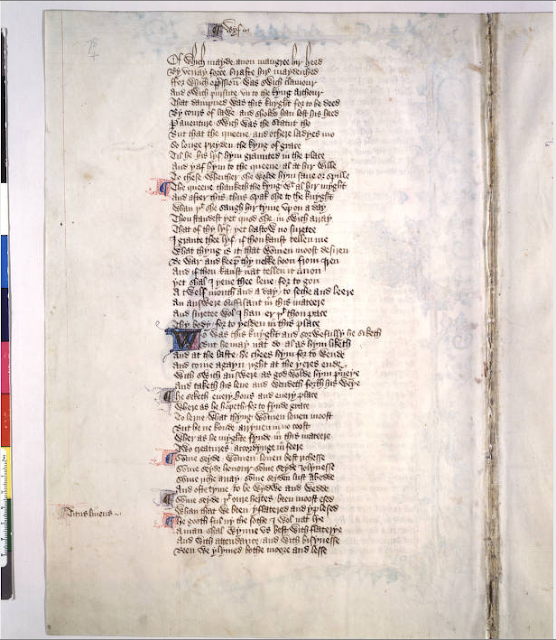 Wyf
Of which mayde anon maugree hir heed
By verray force birafte hir maydenhed
ffor which oppression was swich clamour
And swich pursute vn to the kyng Arthour
That dampned was this knyght for to be deed
By cours of lawe and sholde han lost his heed
Parauenture swich was the statut tho
But that the queene and othere ladyes mo
So longe preyden the kyng of grace
Til he his lyf hym graunted in the place
And yaf hym to the queene al at hir wille
To chese wheither she wolde hym saue or spille
The queene thanketh the kyng with al hir myght
And after this thus spak she to the knyght
Whan þt she saugh hir tyme vp on a day
Thou standest yet quod she in swich array
That of thy lyf yet hastow no suretee
I grante thee lyf if thou kanst tellen me
What thyng is it that wommen moost desiren
Be war and keep thy nekke boon from Iren
And if thou kanst nat tellen it anon
Yet shal I yeue thee leue for to gon
A twelf month and a day to seche and leere
An answere suffisant in this mateere
And suretee wol I han er þt thou pace
Thy body for to yelden in this place
Wo was this knyght and sorwefully he siketh
But he may nat do al as hym liketh
And at the laste he chees hym for to wende
And come agayn right at the yeres ende
With swich answere as god wolde hym purueye
And taketh his leue and wendeth forth his weye
He seketh euery hous and euery place
Where as he hopeth for to fynde grace
To lerne what thyng wommen louen moost
But he ne koude arryuen in no coost
Wher as he myghte fynde in this mateere
Two creatures acordynge in feere
Some seyde wommen louen best richesse
Some seyde honour some seyde Iolynesse
Some riche array some seyden lust abedde
And ofte tyme to be wydwe and wedde
Some seyde þt oure hertes been moost esed
Whan that we been yflatered and yplesed
Titus liuius
He gooth ful ny the sothe I wol nat lye
A man shal wynne vs best with flaterye
And with attendance and with bisynesse
Been we ylymed bothe moore and lesse